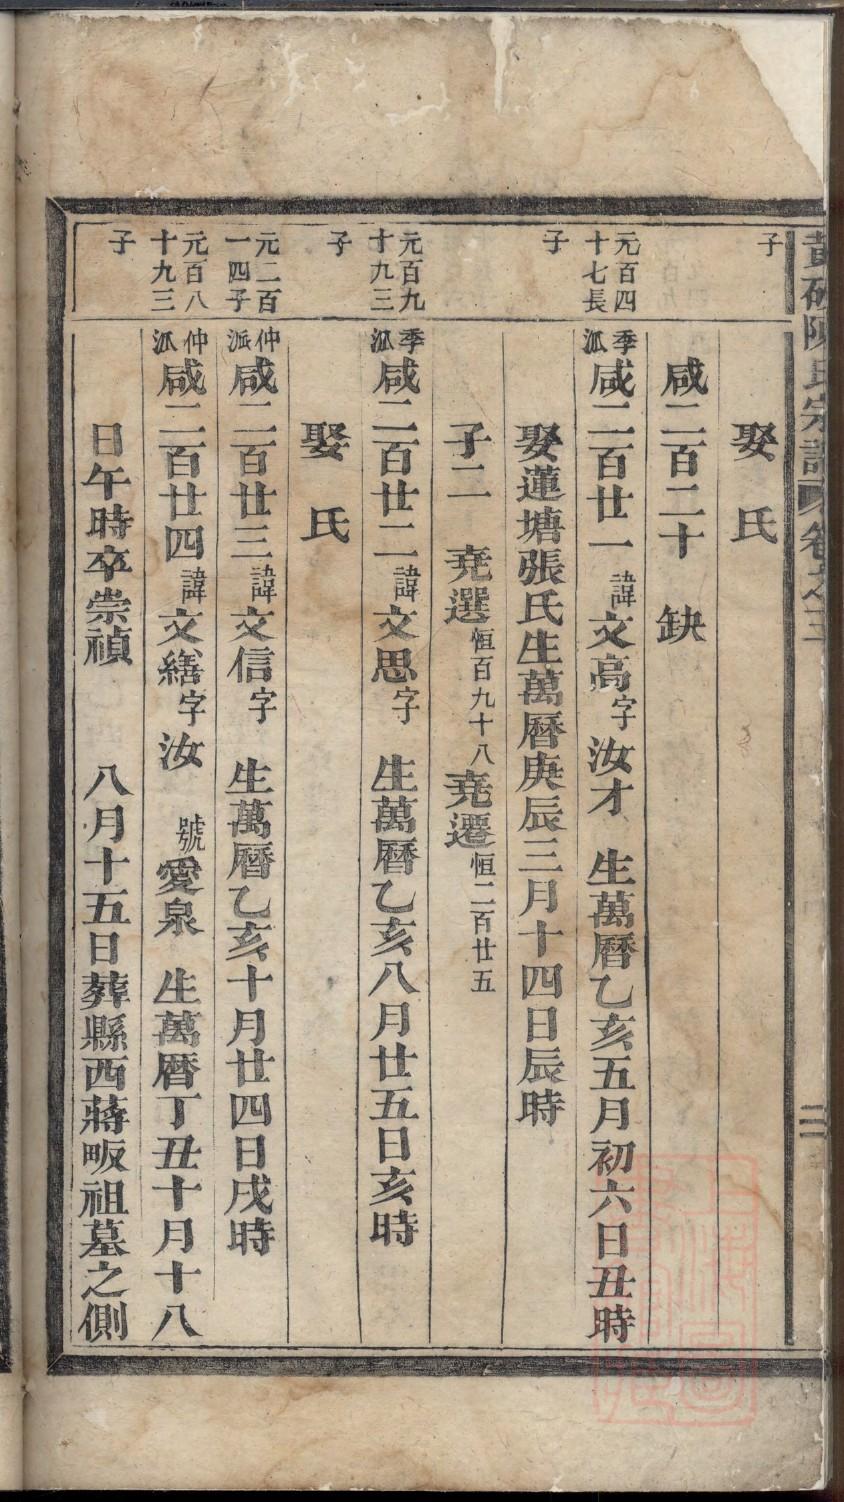 黃砂陳氏宗譜 卷之三 二
子
娶 氏
咸二百二十 缺
元百四十七長 季派咸二百廿一 諱文高字汝才 生萬曆乙亥五月初六日丑時
子 娶蓮塘張氏生萬曆庚辰三月十四日辰時
子二 堯選恒百九十八 堯遷恒二百廿五
元百九十九三 季派咸二百廿二 諱文思字 生萬曆乙亥八月廿五日亥時
子 娶 氏
元二百一四子 仲派咸二百廿三 諱文信字 生萬曆乙亥十月廿四日戌時
元百八十九三 仲派咸二百廿四 諱文繕字汝 號愛泉 生萬曆丁丑十月十八
子 日午時卒崇禎 八月十五日葬縣西蔣畈祖墓之側